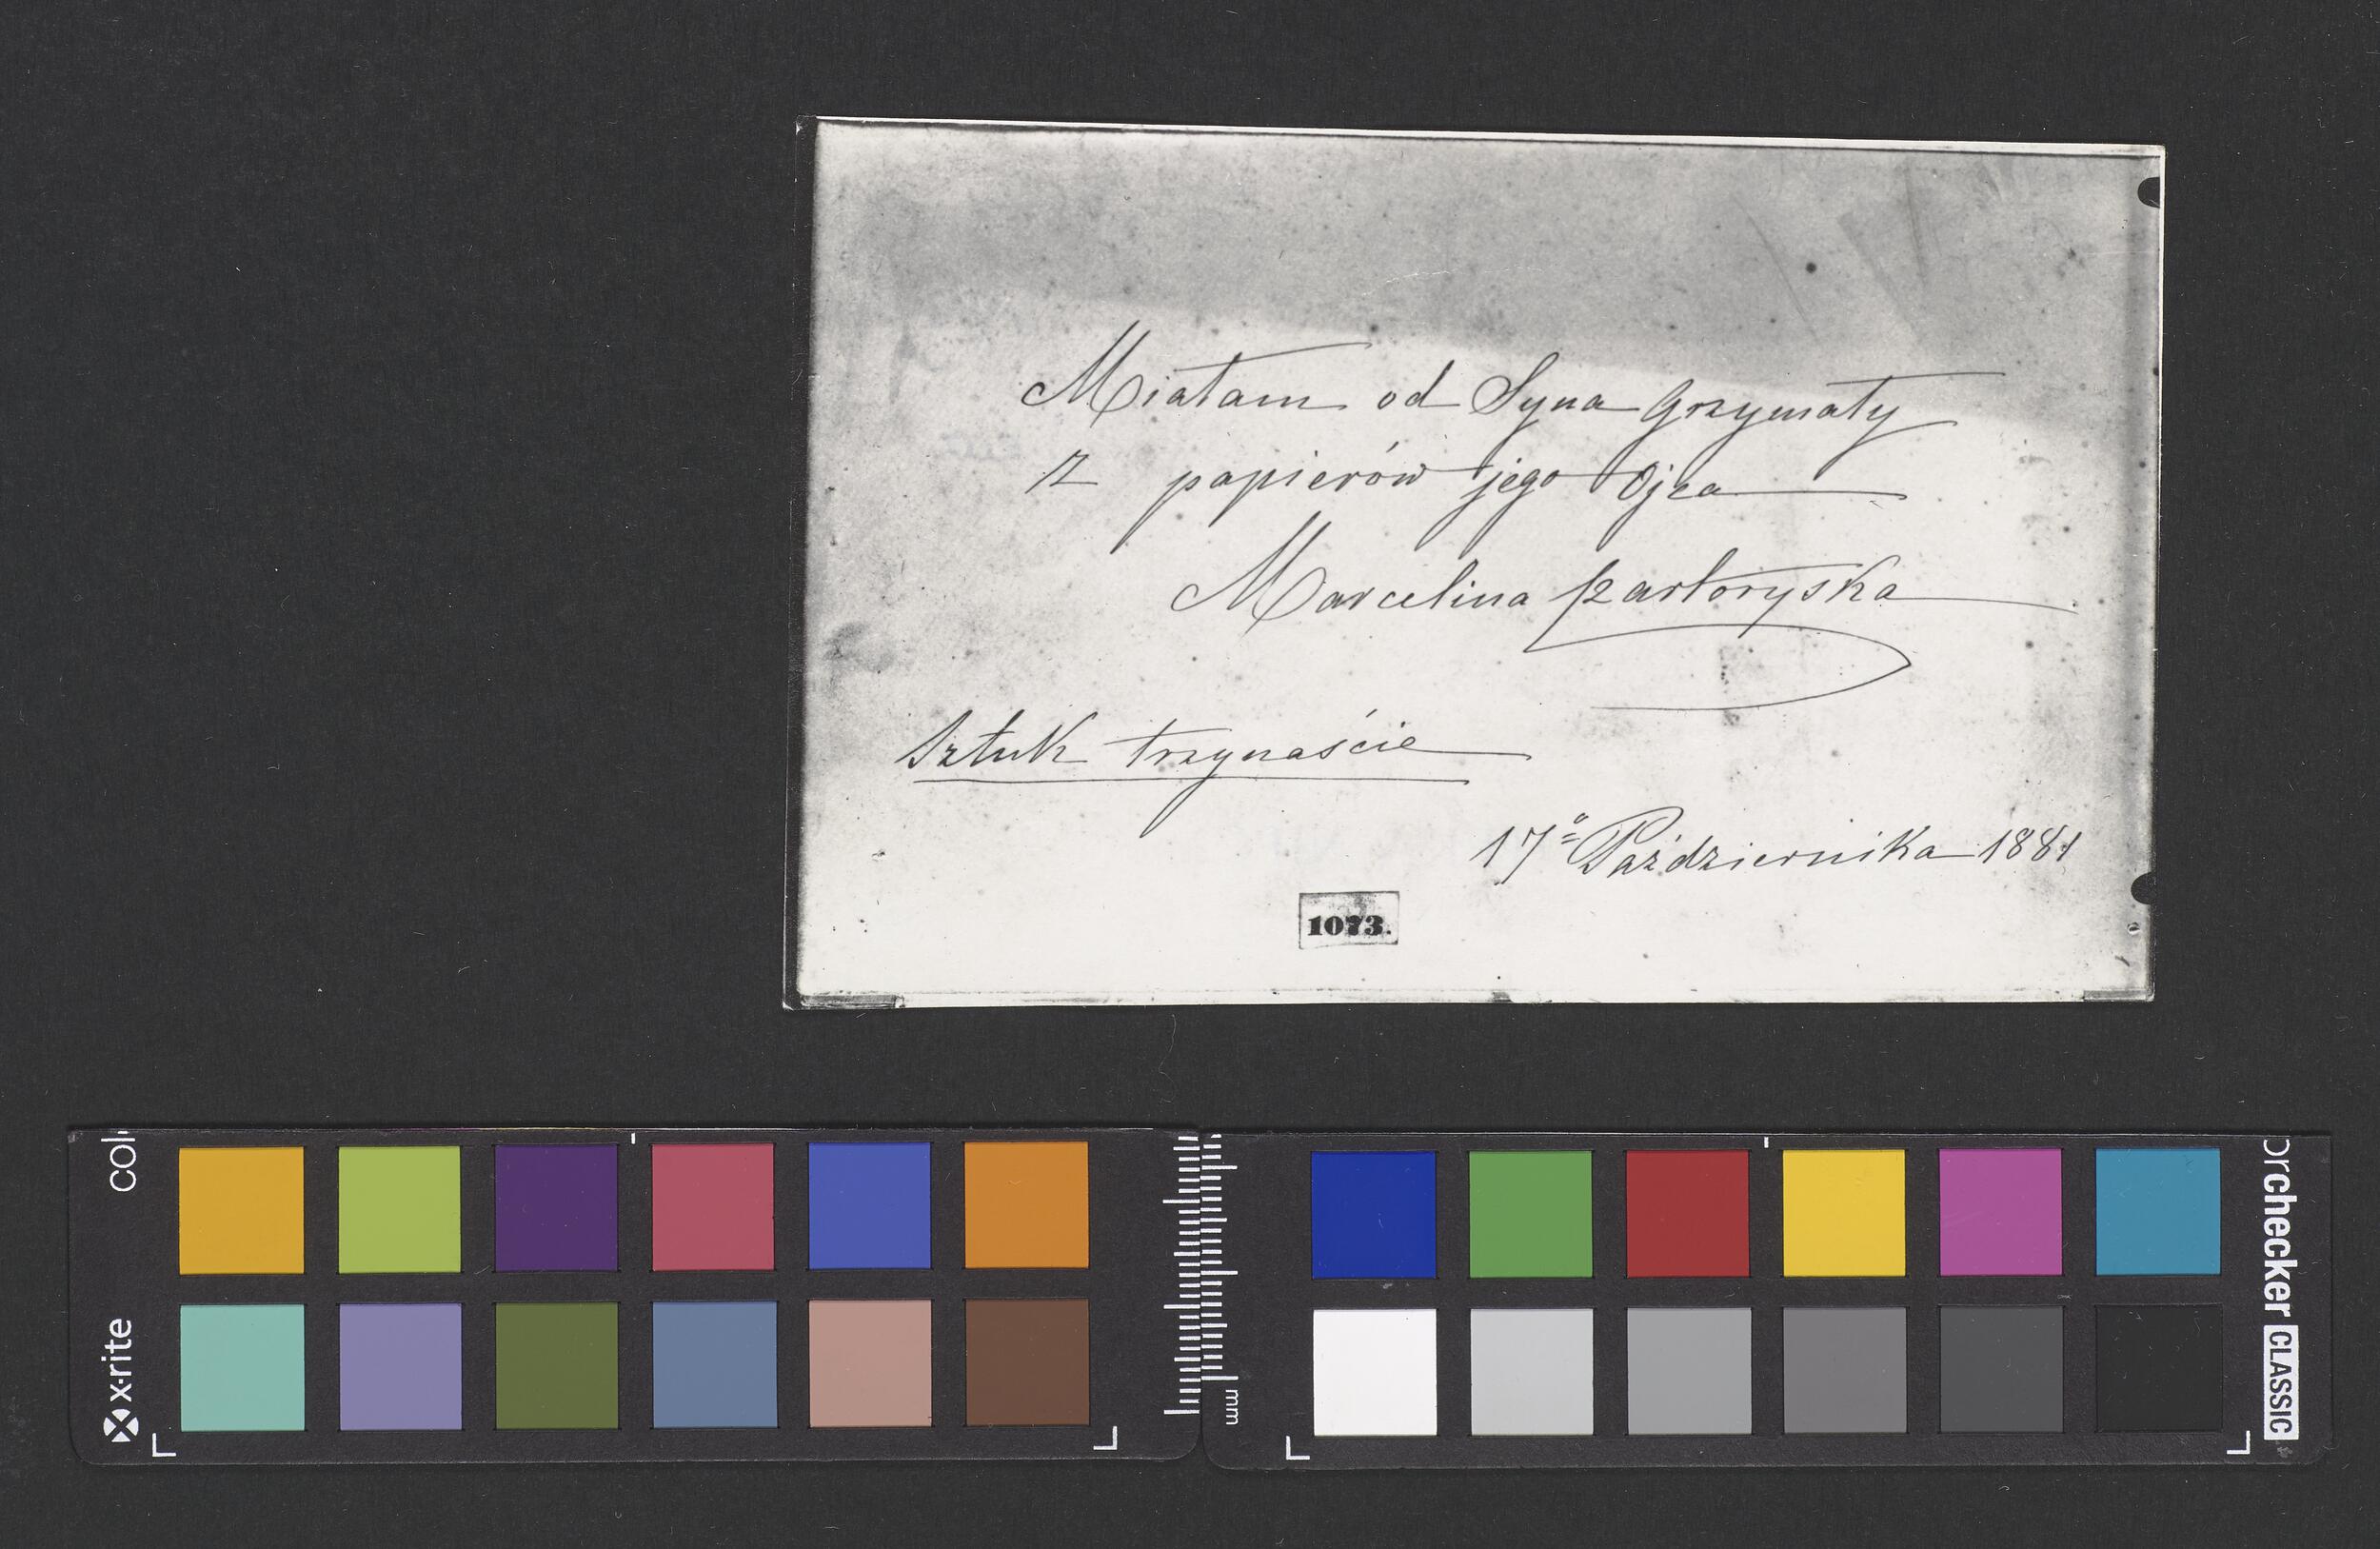 Miałam od Syna Grzymały
z papierów jego Ojca
Marcelina Czartoryska
Sztuk trzynaście
17º Października 1881
1073.
x-rite
col
mm
orchecker CLASSIC